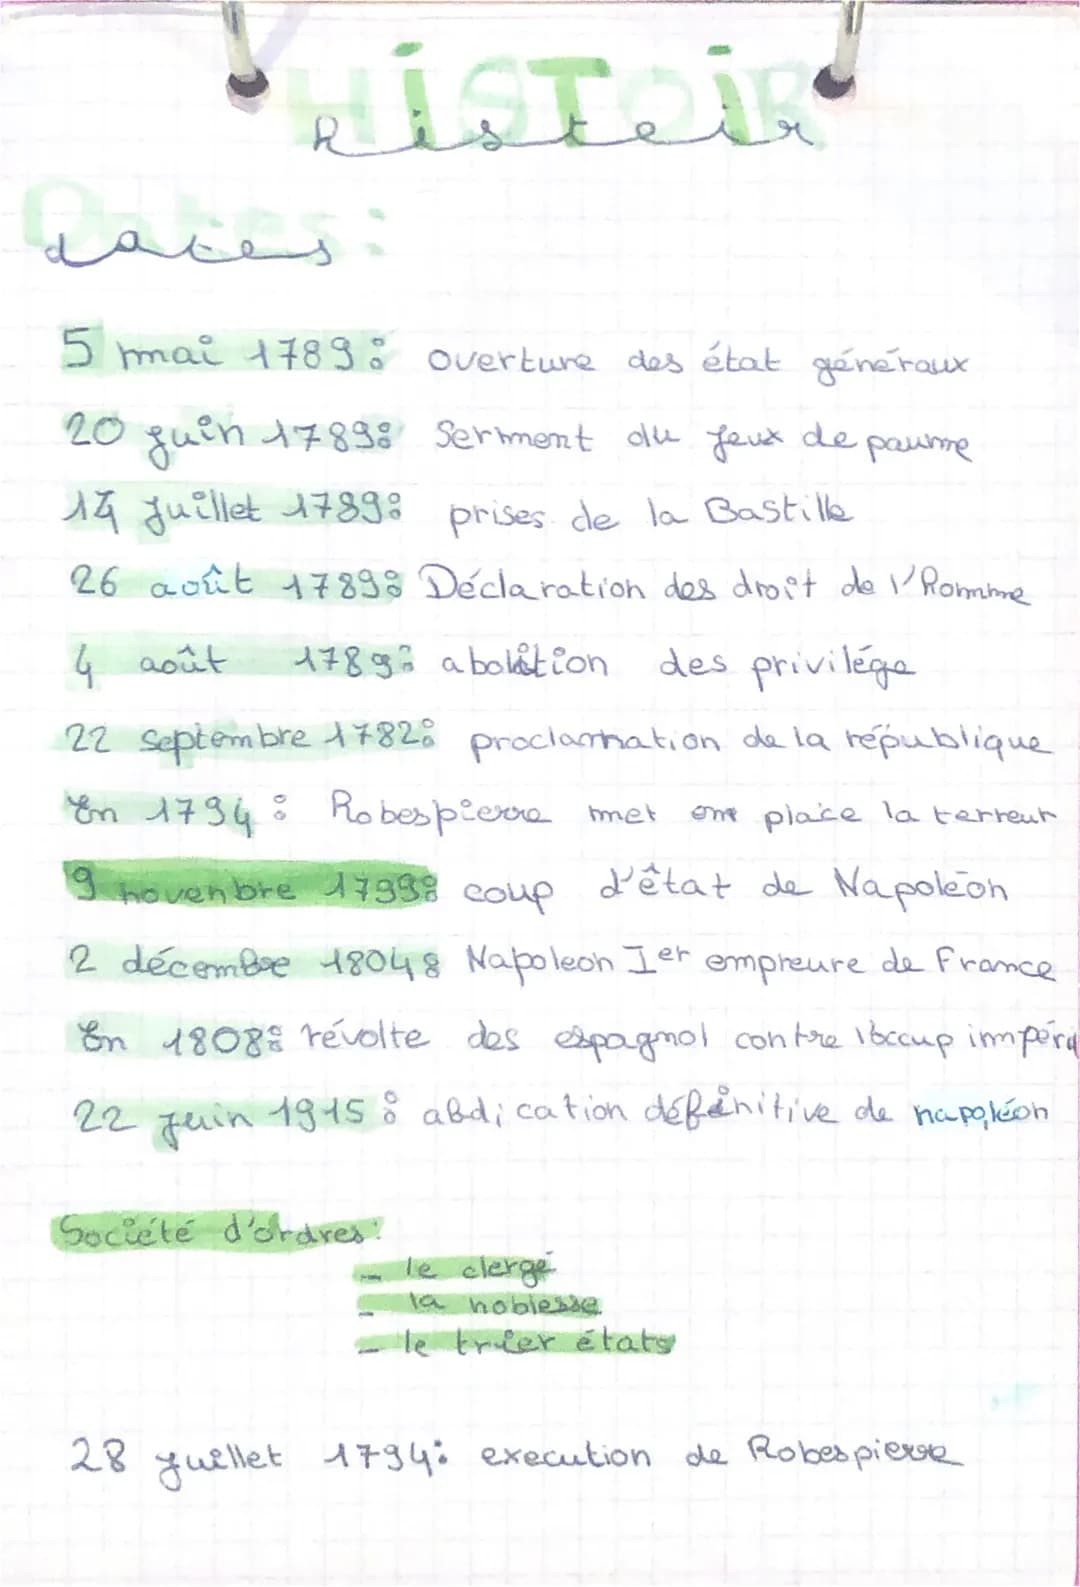 HiSToiR
histoir
Dates:
dates
5 mai 1789: overture des état généraux
20 juin 1789: Serment du jeux de paume
14 juillet 1789: prises de la Bastille
26 août 1789: Déclaration des droit de l'homme
4 août 1789: abolition des privilége
22 septembre 1782: proclamation de la république
En 1794: Robespierre met en place la terreur
9 novenbre 1799: coup d'êtat de Napoléon
2 décembre 1804: Napoleon Ier empreure de France
En 1808: révolte des espagnol contre l'occup impéra
22 juin 1915: abdication définitive de napoléon
Société d'ordres:
- le clergé
- la noblesse
- le trier états
28 juillet 1794: execution de Robespierre